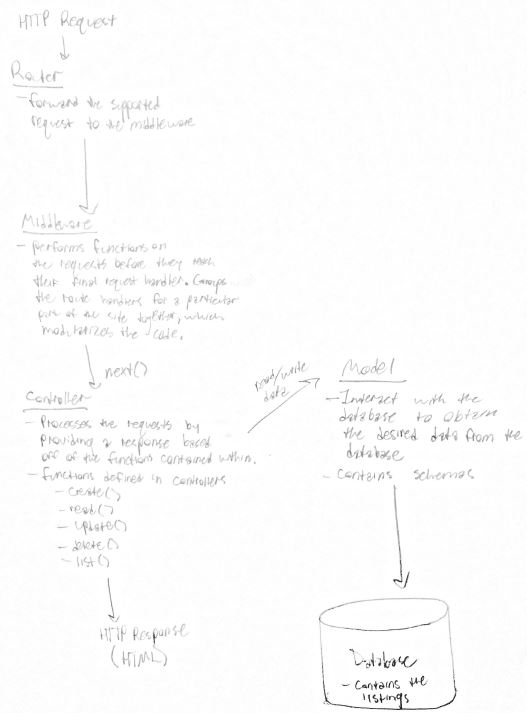 HTTP Request
Router
- forward the supported
request to the middleware
Middleware
- performs functions on
the requests before they reach
their final request handler. Groups
the route handlers for a particular
part of the site together, which
modularizes the code.
next()
Controller
- Processes the requests by
providing a response based
off of the functions contained within.
- functions defined in controllers
- create()
- read()
- update()
- delete()
- list()
HTTP Response
(HTML)
read/write
data
Model
- Interact with the
database to obtain
the desired data from the
database
- contains schemas
Database
- contains the
listings